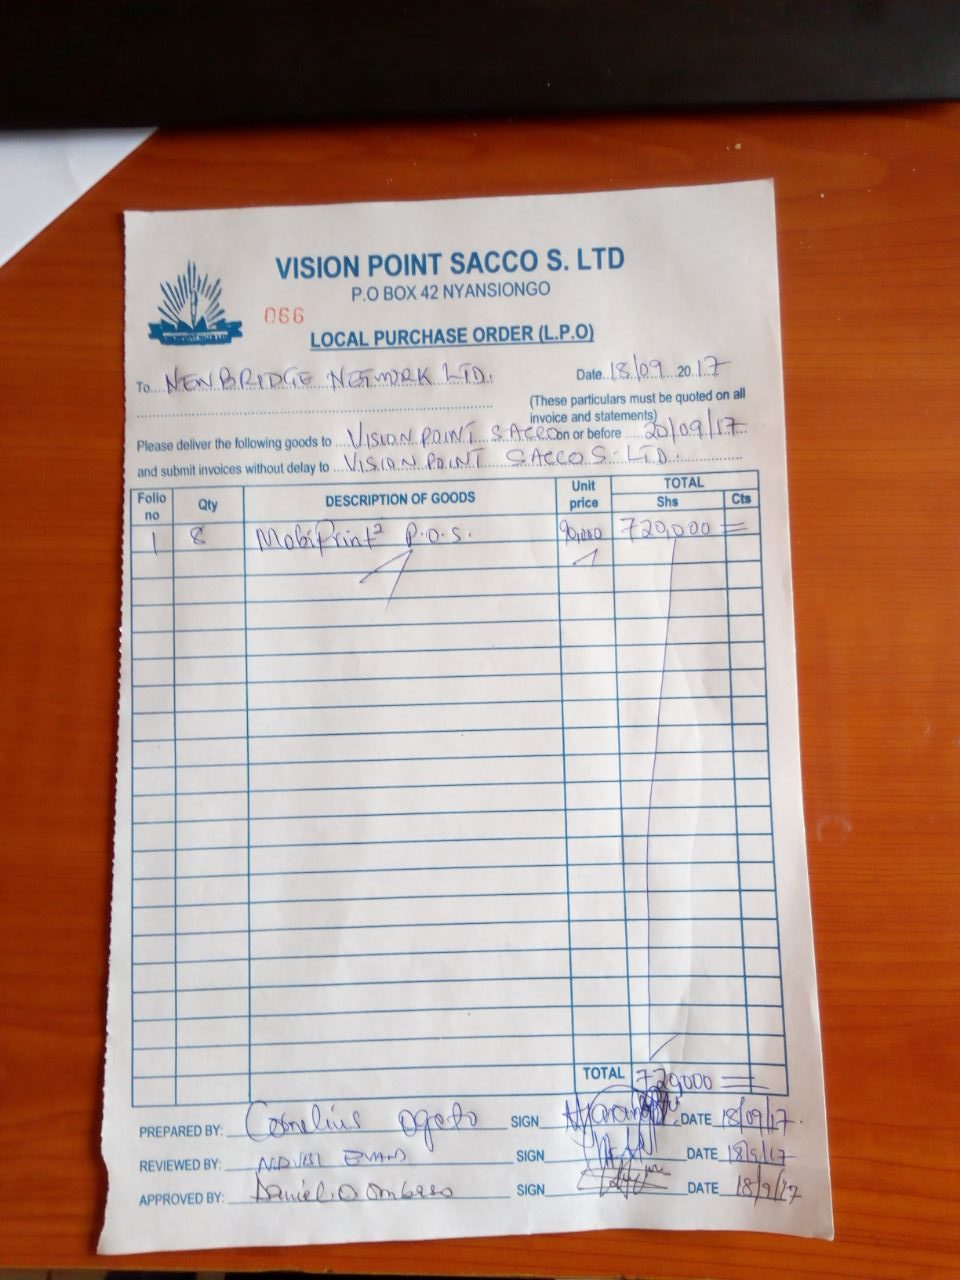 VISION POINT SACCO S. LTD
P.O BOX 42 NYANSIONGO
066
LOCAL PURCHASE ORDER (L.P.O)
To NEWBRIDGE NETWORK LTD. Date 18/09 2017
(These particulars must be quoted on all
invoice and statements)
Please deliver the following goods to VISION POINT SACCO on or before 20/09/17
and submit invoices without delay to VISION POINT SACCO S. LTD.
Folio no Qty DESCRIPTION OF GOODS Unit price TOTAL Shs Cts
1 8 MobiPrint² P.O.S. 90,000 720,000 =
TOTAL 720,000 =
PREPARED BY: Cornelius Ogoto SIGN DATE 18/09/17.
REVIEWED BY: EVANS SIGN DATE 18/9/17
APPROVED BY: Daniel O. SIGN DATE 18/9/17